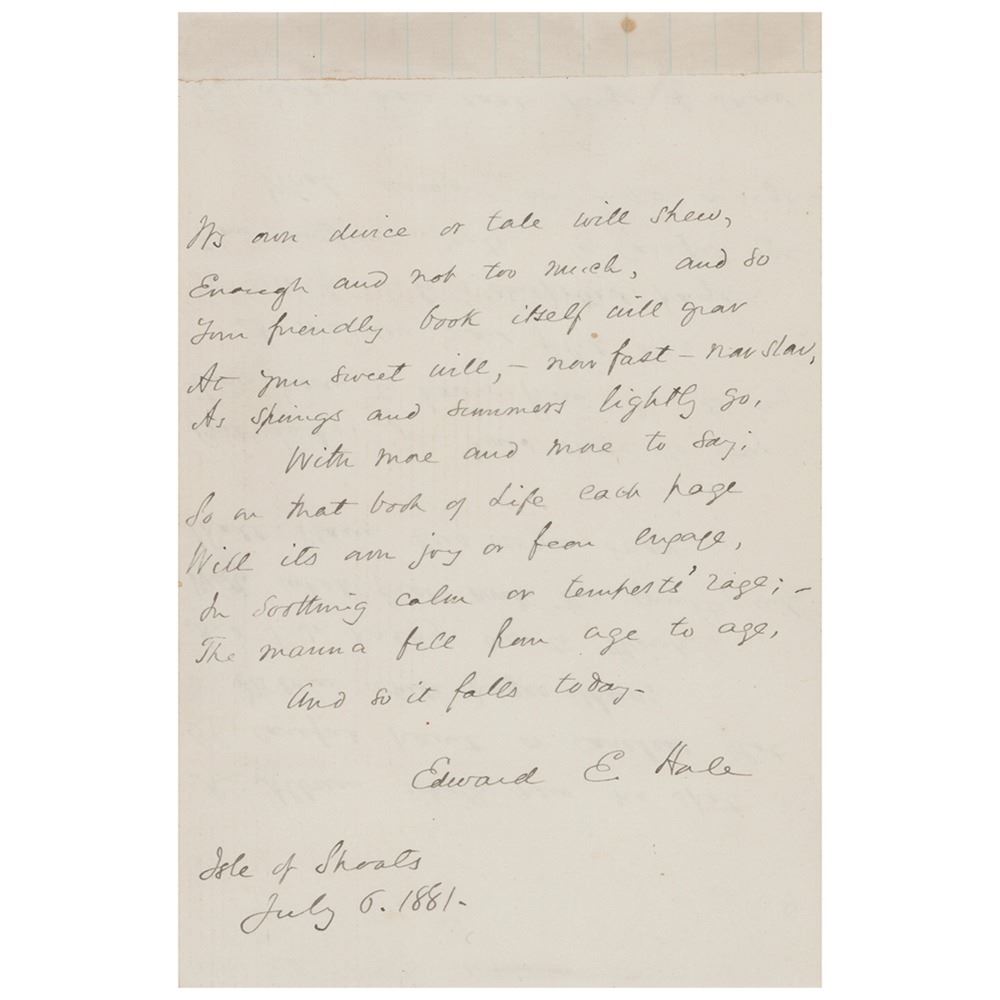 Its own device or tale will shew,
Enough and not too much, and so
Your friendly book itself will grow
At your sweet will, – now fast – now slow,
As springs and summers lightly go,
With more and more to say;
So on that book of Life each page
Will its own joy or fear engage,
In soothing calm or tempests' rage; –
The manna fell from age to age,
And so it falls today –
Edward E. Hale
Isle of Shoals
July 6. 1881.